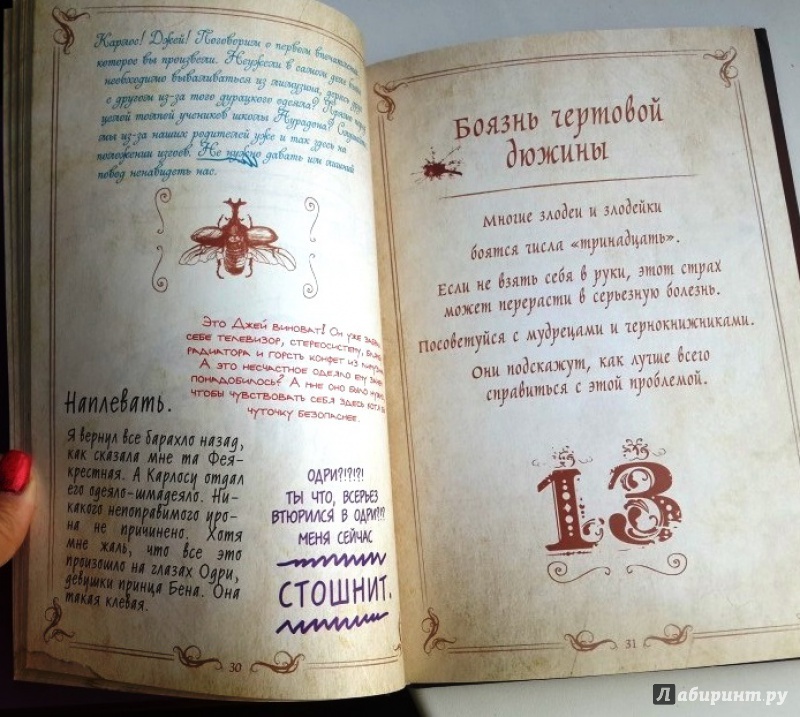 Карлос! Джей! Поговорим о первом впечатлении,
которое вы произвели. Неужели в самом деле было
необходимо вываливаться из лимузина, дерясь друг
с другом из-за того дурацкого одеяла? Прямо перед
целой толпой учеников школы Аурадона?
мы из-за наших родителей уже и так здесь на
положении изгоев. Не нужно давать им лишний
повод ненавидеть нас.
Это Джей виноват! Он уже
себе телевизор, стереосистему,
радиатора и горсть конфет из
А это несчастное одеяло ему
понадобилось? А мне оно было
чтобы чувствовать себя здесь хотя бы
чуточку безопаснее.
Наплевать.
Я вернул все барахло назад,
как сказала мне та Фея-
крестная. А Карлосу отдал
его одеяло-шмадеяло. Ни-
какого непоправимого уро-
на не причинено. Хотя
мне жаль, что все это
произошло на глазах Одри,
девушки принца Бена. Она
такая клевая.
ОДРИ?!?!?!
ТЫ ЧТО, ВСЕРЬЕЗ
ВТЮРИЛСЯ В ОДРИ?!?
МЕНЯ СЕЙЧАС
СТОШНИТ.
30
Боязнь чертовой
дюжины
Многие злодеи и злодейки
боятся числа «тринадцать».
Если не взять себя в руки, этот страх
может перерасти в серьезную болезнь.
Посоветуйся с мудрецами и чернокнижниками.
Они подскажут, как лучше всего
справиться с этой проблемой.
13
31
Лабиринт.ру